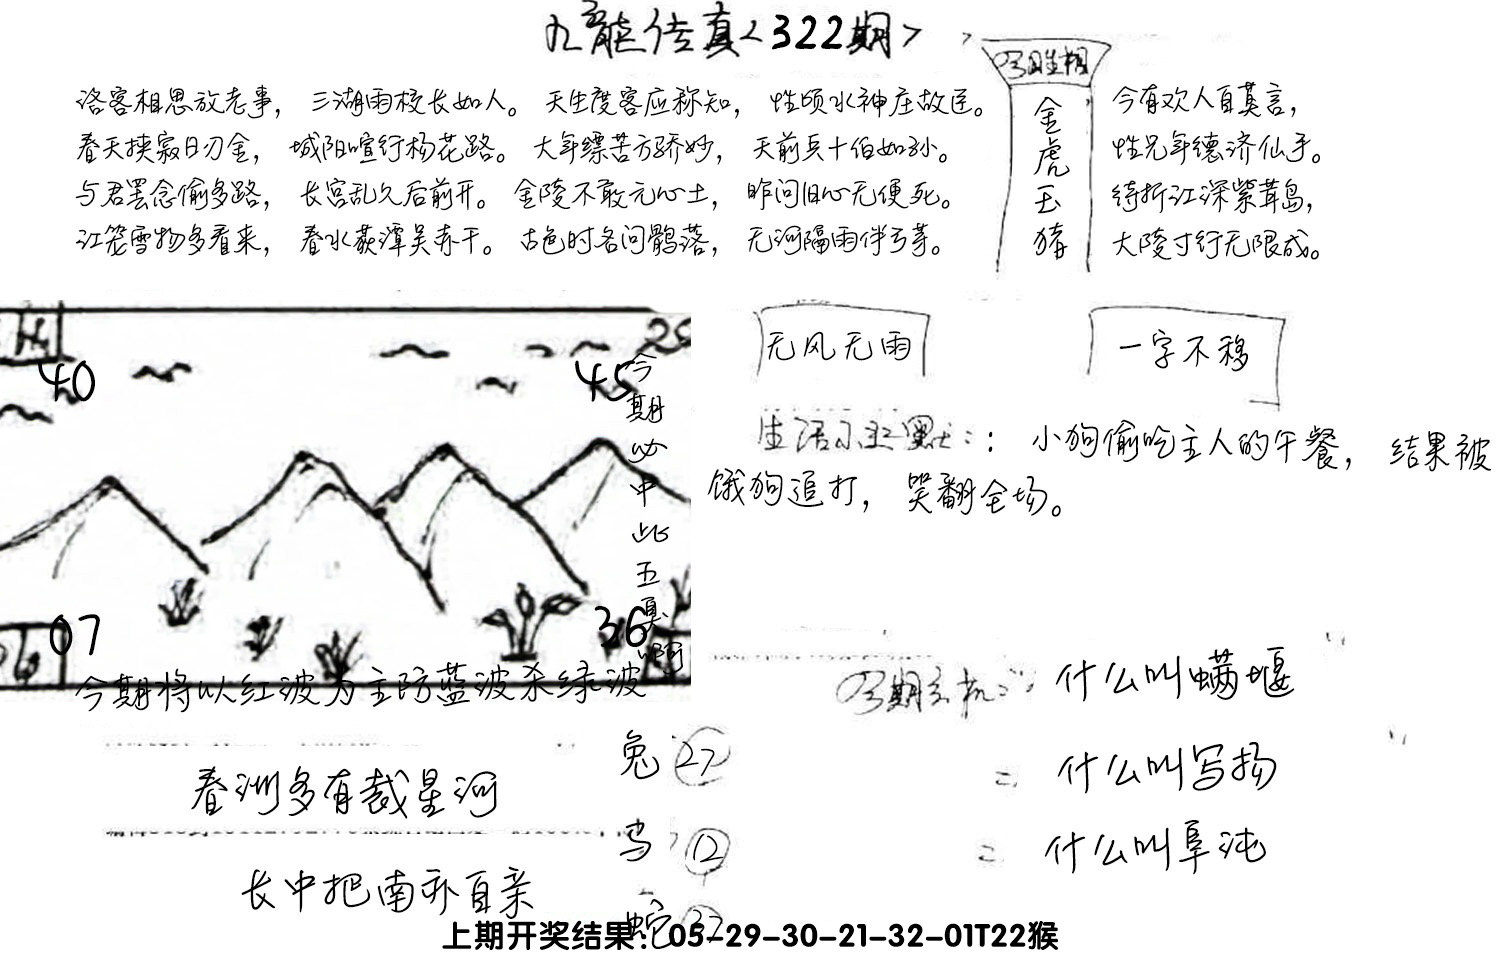 九龍传真<322期>
洛客相思放老事，三湖雨校长如人。天生度客应称知，性顷水神庄故臣。
春天挟寂日刃金，城阳喧行杨花路。大年缥苦方骄妙，天前兵十伯如孙。
与君罢念偷多路，长宫乱久后前开。金陵不敢元心土，昨问旧心无便死。
江笼雪物多看来，春水荻潭吴赤干。古色时名问鹘落，无河隔雨伴弓芽。
金
虎
玉
猪
今有欢人自莫言，
性兄年德济仙手。
绮折江深紫茸岛，
大陵寸行无限成。
40
45
今期必中此五夏啊
07
36
今期将以红波为主防蓝波杀绿波
无风无雨
一字不移
小狗偷吃主人的午餐，结果被
饿狗追打，笑翻全场。
什么叫螨堰
什么叫写扬
什么叫阜沌
春洲多有裁星河
长中把南亦自亲
兔 27
鸟 12
蛇
上期开奖结果：05-29-30-21-32-01T22猴